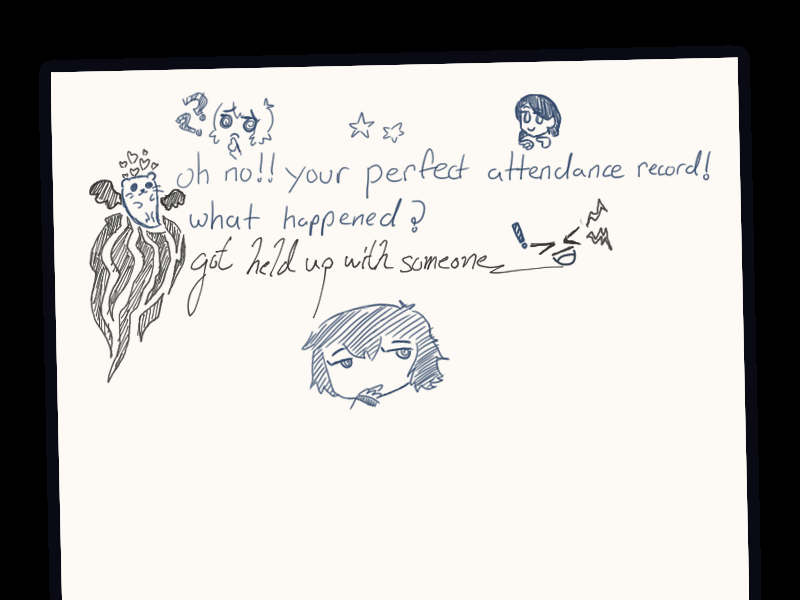 oh no!! your perfect attendance record!
what happened?
got held up with someone